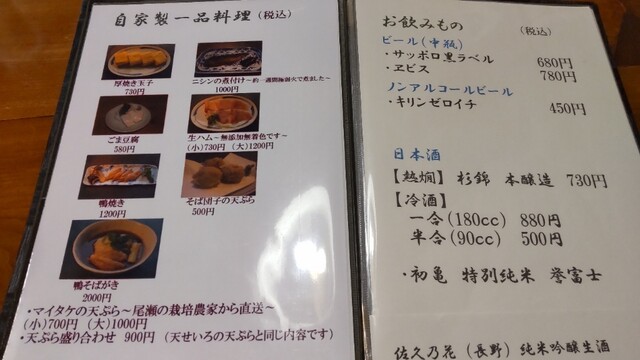 自家製一品料理（税込）
厚焼き玉子
730円
ニシンの煮付け～約一週間極弱火で煮ました～
1000円
ごま豆腐
580円
生ハム～無添加無着色です～
(小)730円 (大)1200円
鴨焼き
1200円
そば団子の天ぷら
500円
鴨そばがき
2000円
・マイタケの天ぷら～尾瀬の栽培農家から直送～
(小)700円 (大)1000円
・天ぷら盛り合わせ 900円 (天せいろの天ぷらと同じ内容です)
お飲みもの（税込）
ビール（中瓶）
・サッポロ黒ラベル 680円
・ヱビス 780円
ノンアルコールビール
・キリンゼロイチ 450円
日本酒
【熱燗】杉錦 本醸造 730円
【冷酒】
一合(180cc) 880円
半合(90cc) 500円
・初亀 特別純米 誉富士
佐久乃花（長野）純米吟醸生酒